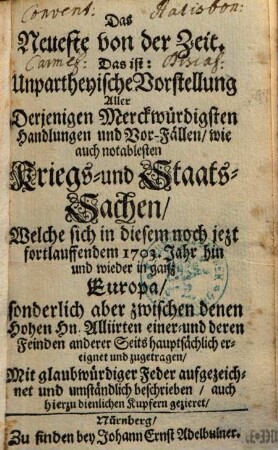 Convent: Ratisbon:
Das
Neueste von der Zeit.
Carmel: Discal:
Das ist:
Unpartheyische Vorstellung
Aller
Derjenigen Merckwürdigsten
Handlungen und Vor-Fällen/ wie
auch notablesten
Kriegs-und Staats-
Sachen/
Welche sich in diesem noch jezt
fortlauffendem 1703. Jahr hin
und wieder in gantz
Europa/
sonderlich aber zwischen denen
Hohen Hn. Alliirten einer-und deren
Feinden anderer Seits hauptsächlich er-
eignet und zugetragen/
Mit glaubwürdiger Feder aufgezeich-
net und umständlich beschrieben/ auch
hierzu dienlichen Kupfern gezieret/
Nürnberg/
Zu finden bey Johann Ernst Adelbulner.